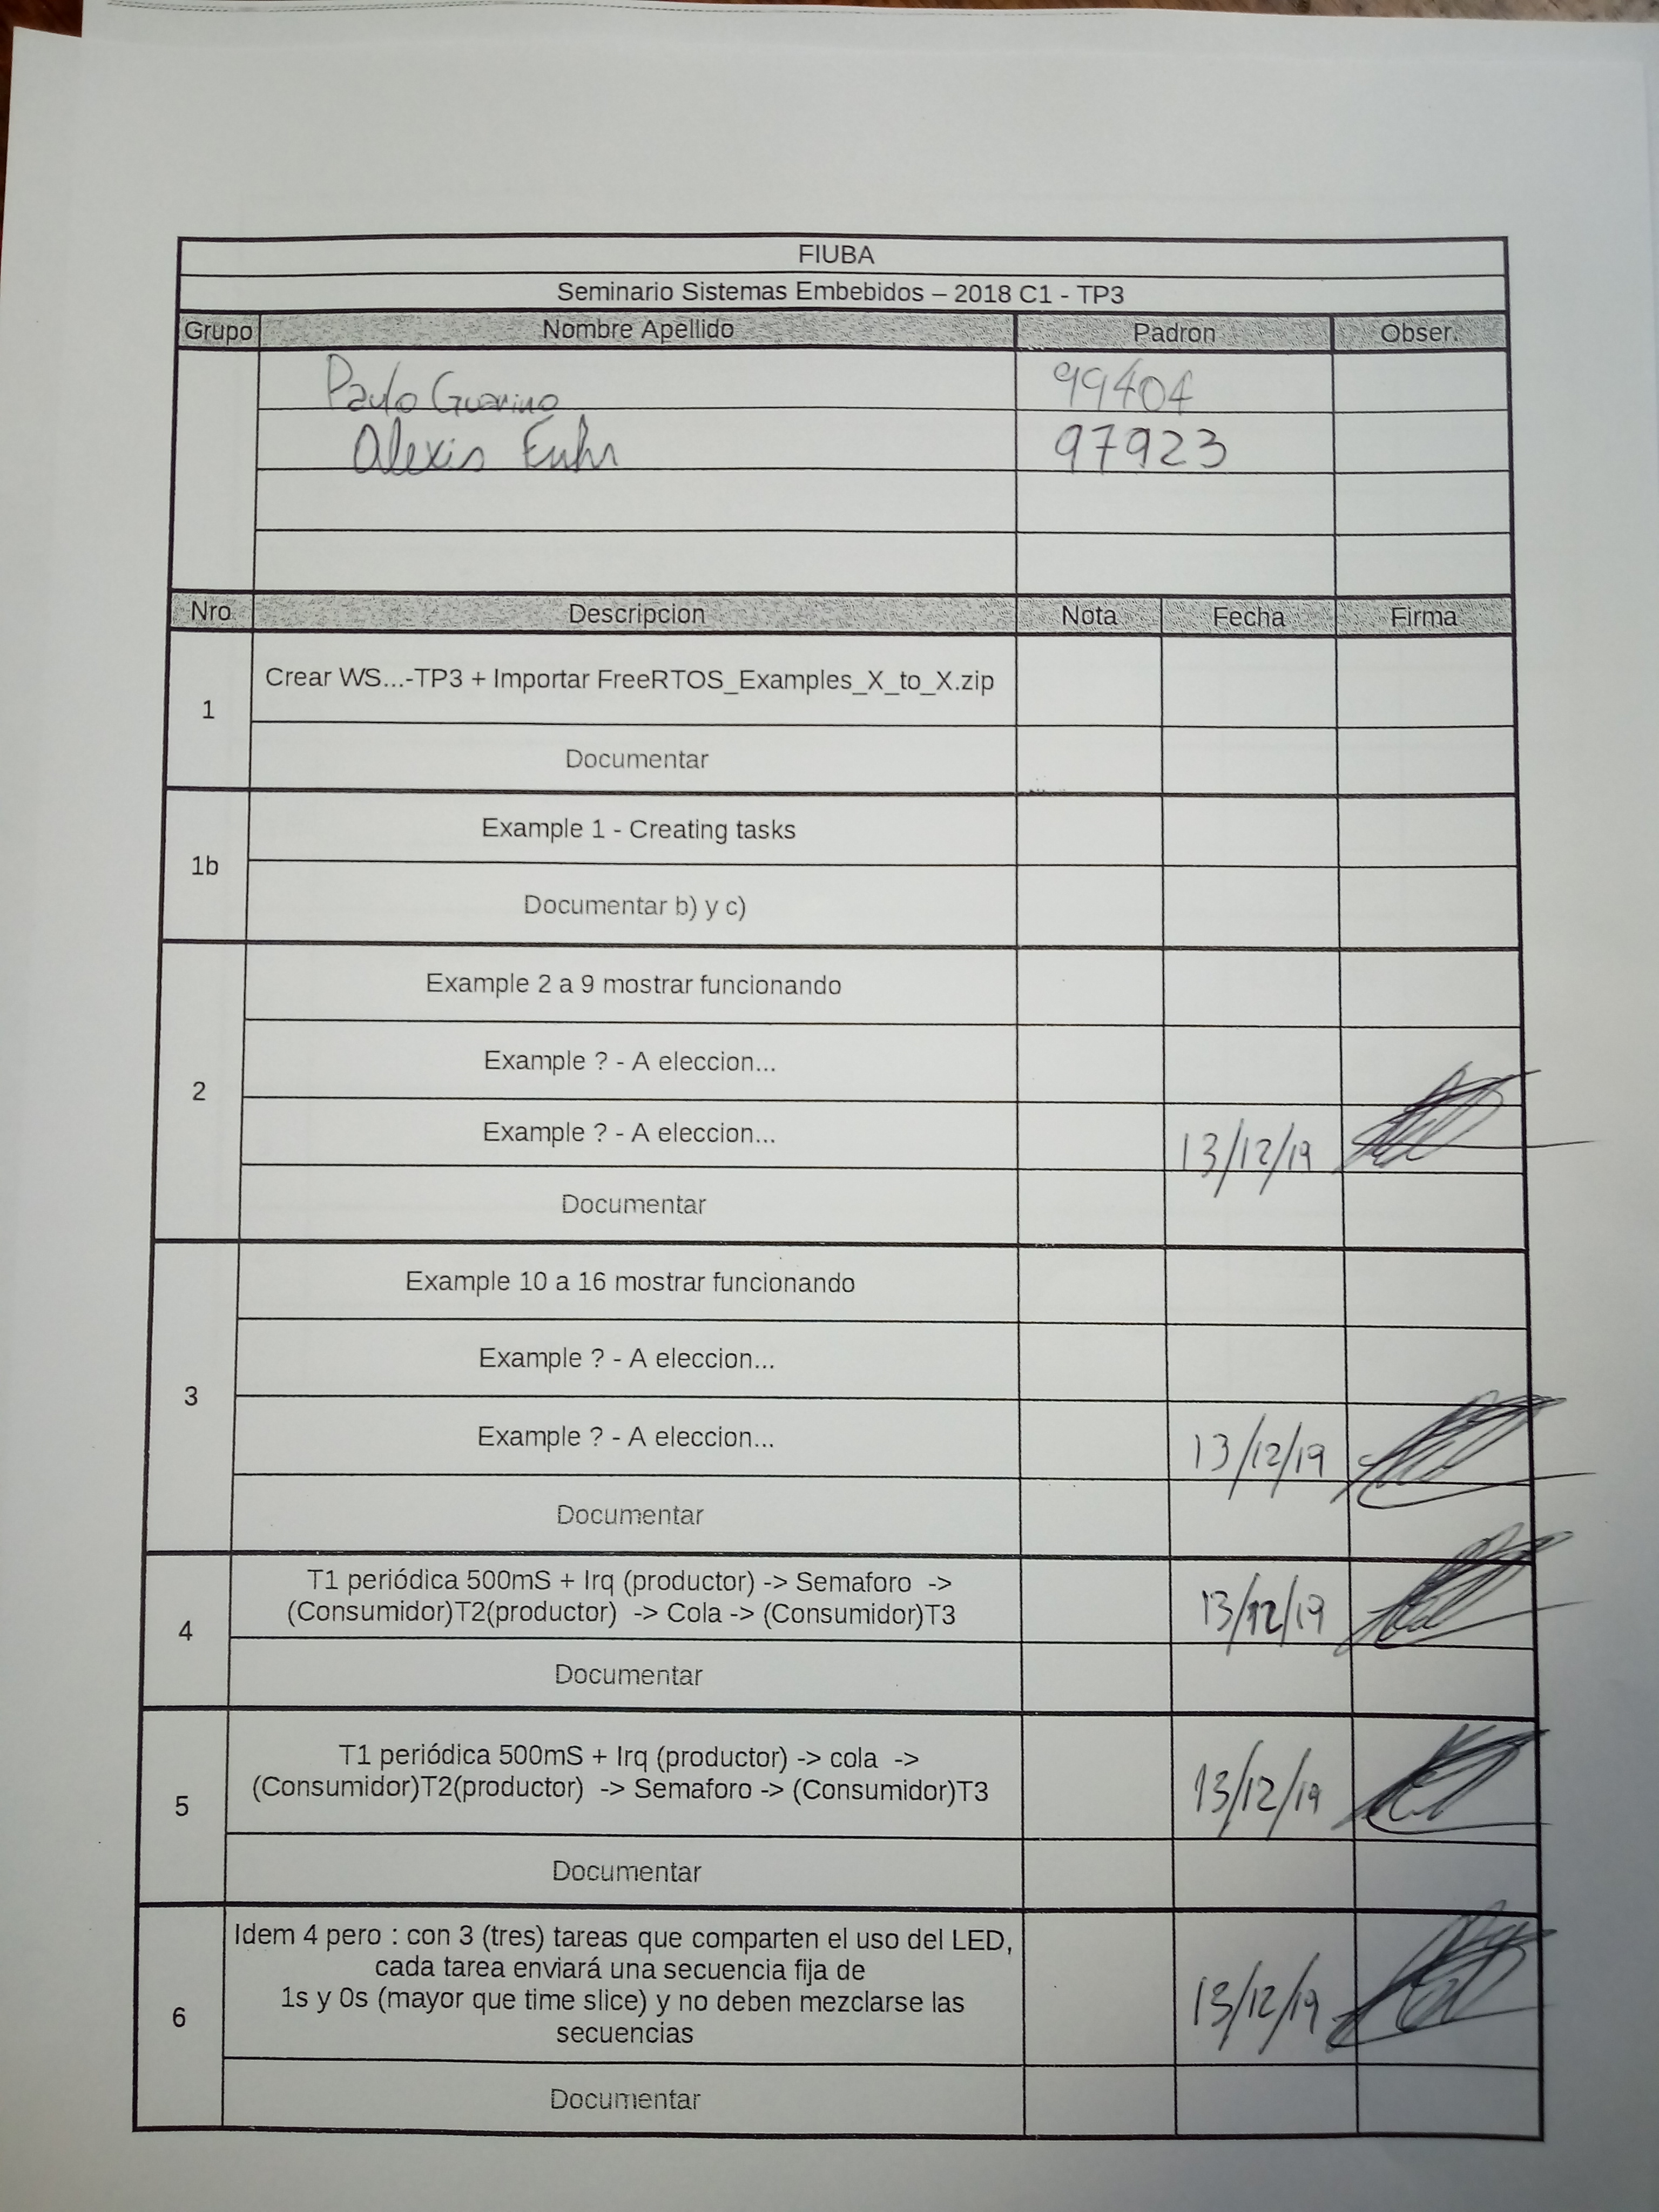 FIUBA
Seminario Sistemas Embebidos – 2018 C1 - TP3
Grupo Nombre Apellido Padron Obser.
Paulo Guarino 99404
Alexis Fuhr 97923
Nro Descripcion Nota Fecha Firma
1
Crear WS...-TP3 + Importar FreeRTOS_Examples_X_to_X.zip
Documentar
1b
Example 1 - Creating tasks
Documentar b) y c)
2
Example 2 a 9 mostrar funcionando
Example ? - A eleccion...
Example ? - A eleccion... 13/12/19
Documentar
3
Example 10 a 16 mostrar funcionando
Example ? - A eleccion...
Example ? - A eleccion... 13/12/19
Documentar
4
T1 periódica 500mS + Irq (productor) -> Semaforo ->
(Consumidor)T2(productor) -> Cola -> (Consumidor)T3 13/12/19
Documentar
5
T1 periódica 500mS + Irq (productor) -> cola ->
(Consumidor)T2(productor) -> Semaforo -> (Consumidor)T3 13/12/19
Documentar
6
Idem 4 pero : con 3 (tres) tareas que comparten el uso del LED,
cada tarea enviará una secuencia fija de
1s y 0s (mayor que time slice) y no deben mezclarse las 13/12/19
secuencias
Documentar